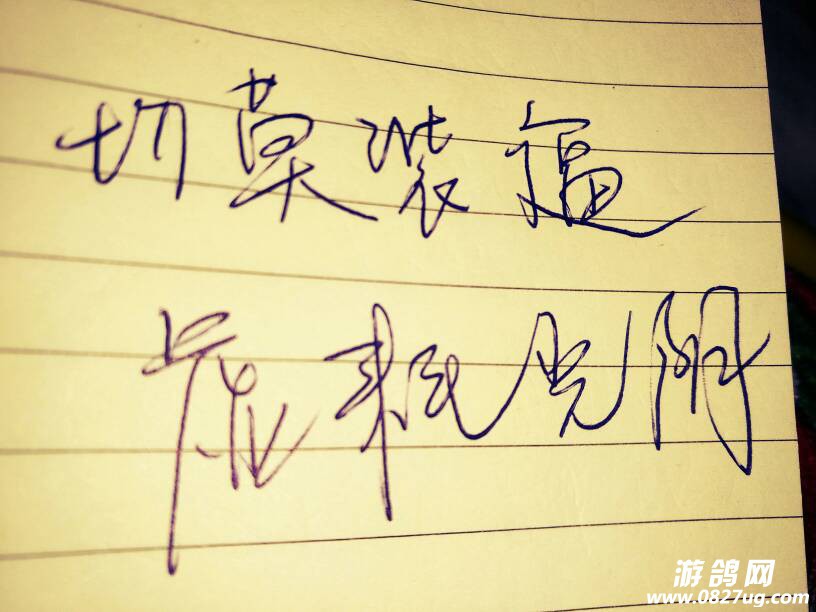 切莫装逼
虚耗光阴
游鸽网
www.0827ug.com